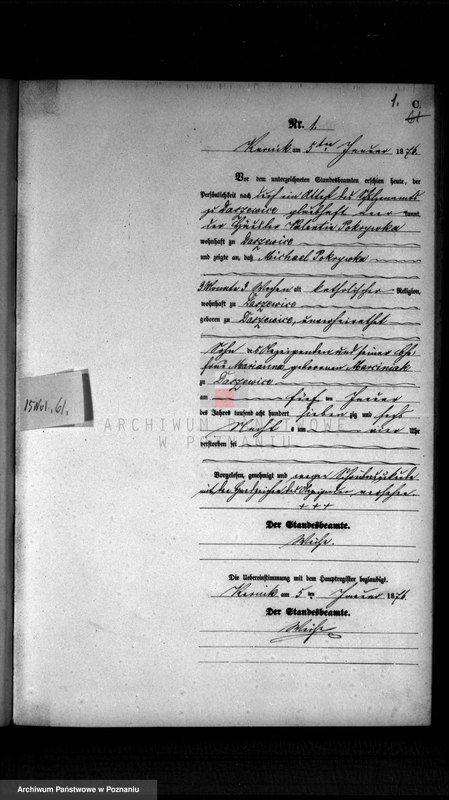 1. C.
61
Nr. 1.
Kurnik am 5ten Januar 1876.
Vor dem unterzeichneten Standesbeamten erschien heute, der
Persönlichkeit nach durch ein Attest des Schulzenamts
zu Daszewice
der Häusler Valentin Pokrywka
wohnhaft zu Daszewice
und zeigte an, daß Michael Pokrywka
3 Monate 3 Wochen alt, katholischer Religion,
wohnhaft zu Daszewice
geboren zu Daszewice, unverheirathet
Sohn des Anzeigenden und seiner Ehe-
frau Marianna, geborenen Marciniak
zu Daszewice
am fünf ten Januar
des Jahres tausend acht hundert sieben zig und sechs
Nachts um vier Uhr
verstorben sei
Vorgelesen, genehmigt und wegen
mit den Handzeichen des Anzeigenden versehen.
+++
Der Standesbeamte.
Die Uebereinstimmung mit dem Hauptregister beglaubigt.
Kurnik am 5 ten Januar 1876.
Der Standesbeamte.
15 Wol. 61.
ARCHIWUM PAŃSTWOWE
W POZNANIU
Archiwum Państwowe w Poznaniu